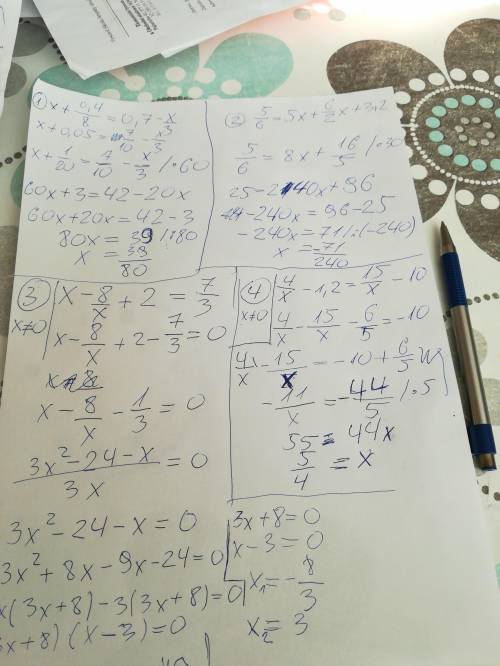 ① x + 0,4/8 = 0,7 - x
x + 0,05 = 7/10 - x/3
x + 1/20 = 7/10 - x/3 /·60
60x + 3 = 42 - 20x
60x + 20x = 42 - 3
80x = 39 /:80
x = 39/80
② 5/6 = 5x + 6/2 x + 3,2
5/6 = 8x + 16/5 /·30
25 = 240x + 96
-240x = 96 - 25
-240x = 71 /:(-240)
x = -71/240
③ x - 8/x + 2 = 7/3
x≠0
x - 8/x + 2 - 7/3 = 0
x - 8/x - 1/3 = 0
3x² - 24 - x/3x = 0
3x² - 24 - x = 0
3x² + 8x - 9x - 24 = 0
x(3x+8) - 3(3x+8) = 0
3x+8) (x-3) = 0
④ 4/x - 1,2 = 15/x - 10
x≠0
4/x - 15/x - 6/5 = -10
4/x - 15/x = -10 + 6/5
-11/x = -44/5 /·5
55 = 44x
5/4 = x
3x + 8 = 0
x - 3 = 0
x₁ = -8/3
x₂ = 3